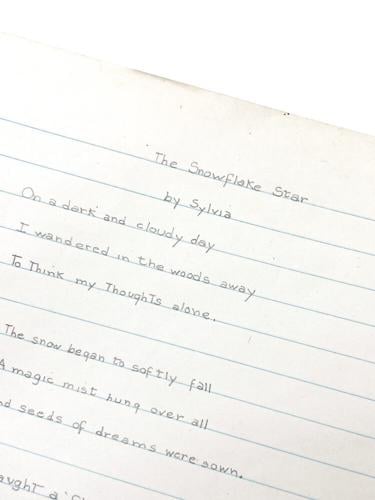 The Snowflake Star
by Sylvia
On a dark and cloudy day
I wandered in the woods away
To Think my ThoughTs alone.
The snow began to softly fall
A magic mist hung over all
seeds of dreams were sown.